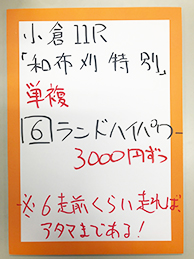 小倉11R
「和布刈特別」
単複
6 ランドハイパワー
3000円ずつ
※6走前くらい走れば、
アタマまである!